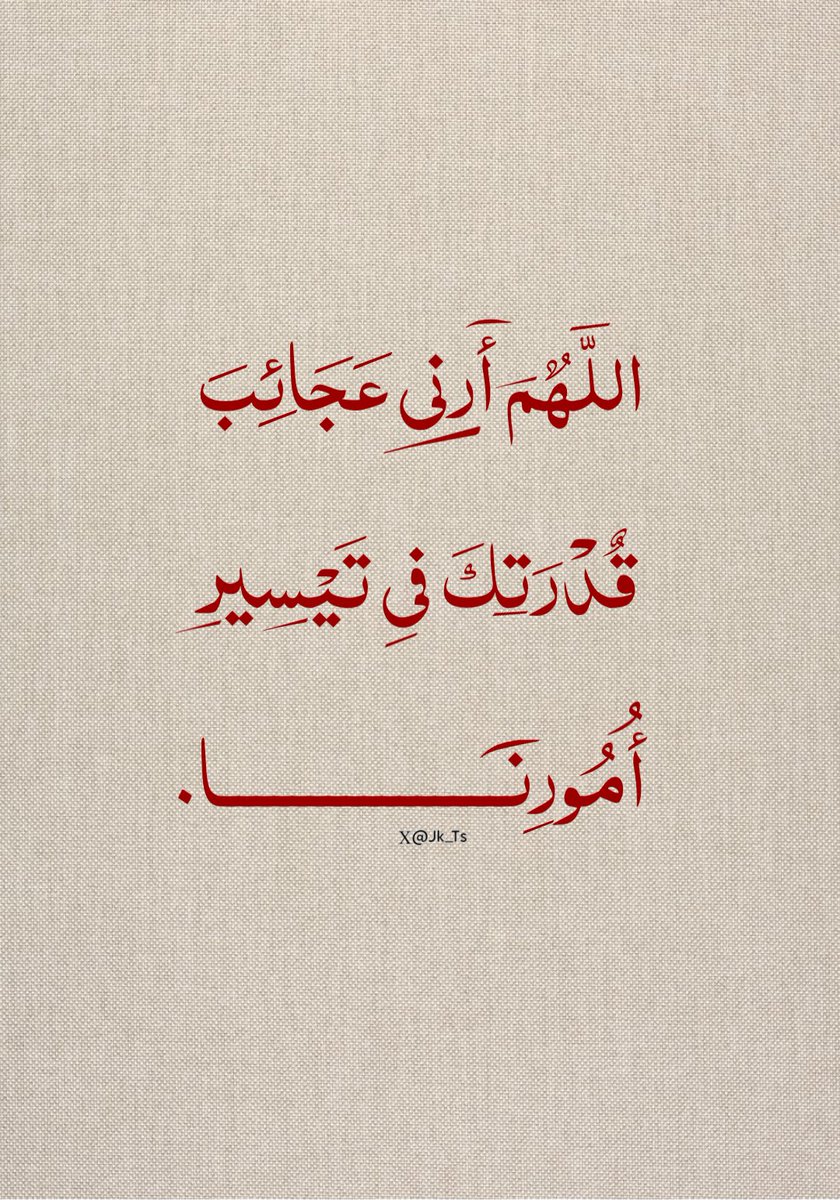 اللَّهُمَ أَرِنِي عَجَائِبَ
قُدْرَتِكَ فِي تَيْسِيرِ
أُمُورِنَـــــــــا.
X@Jk_Ts